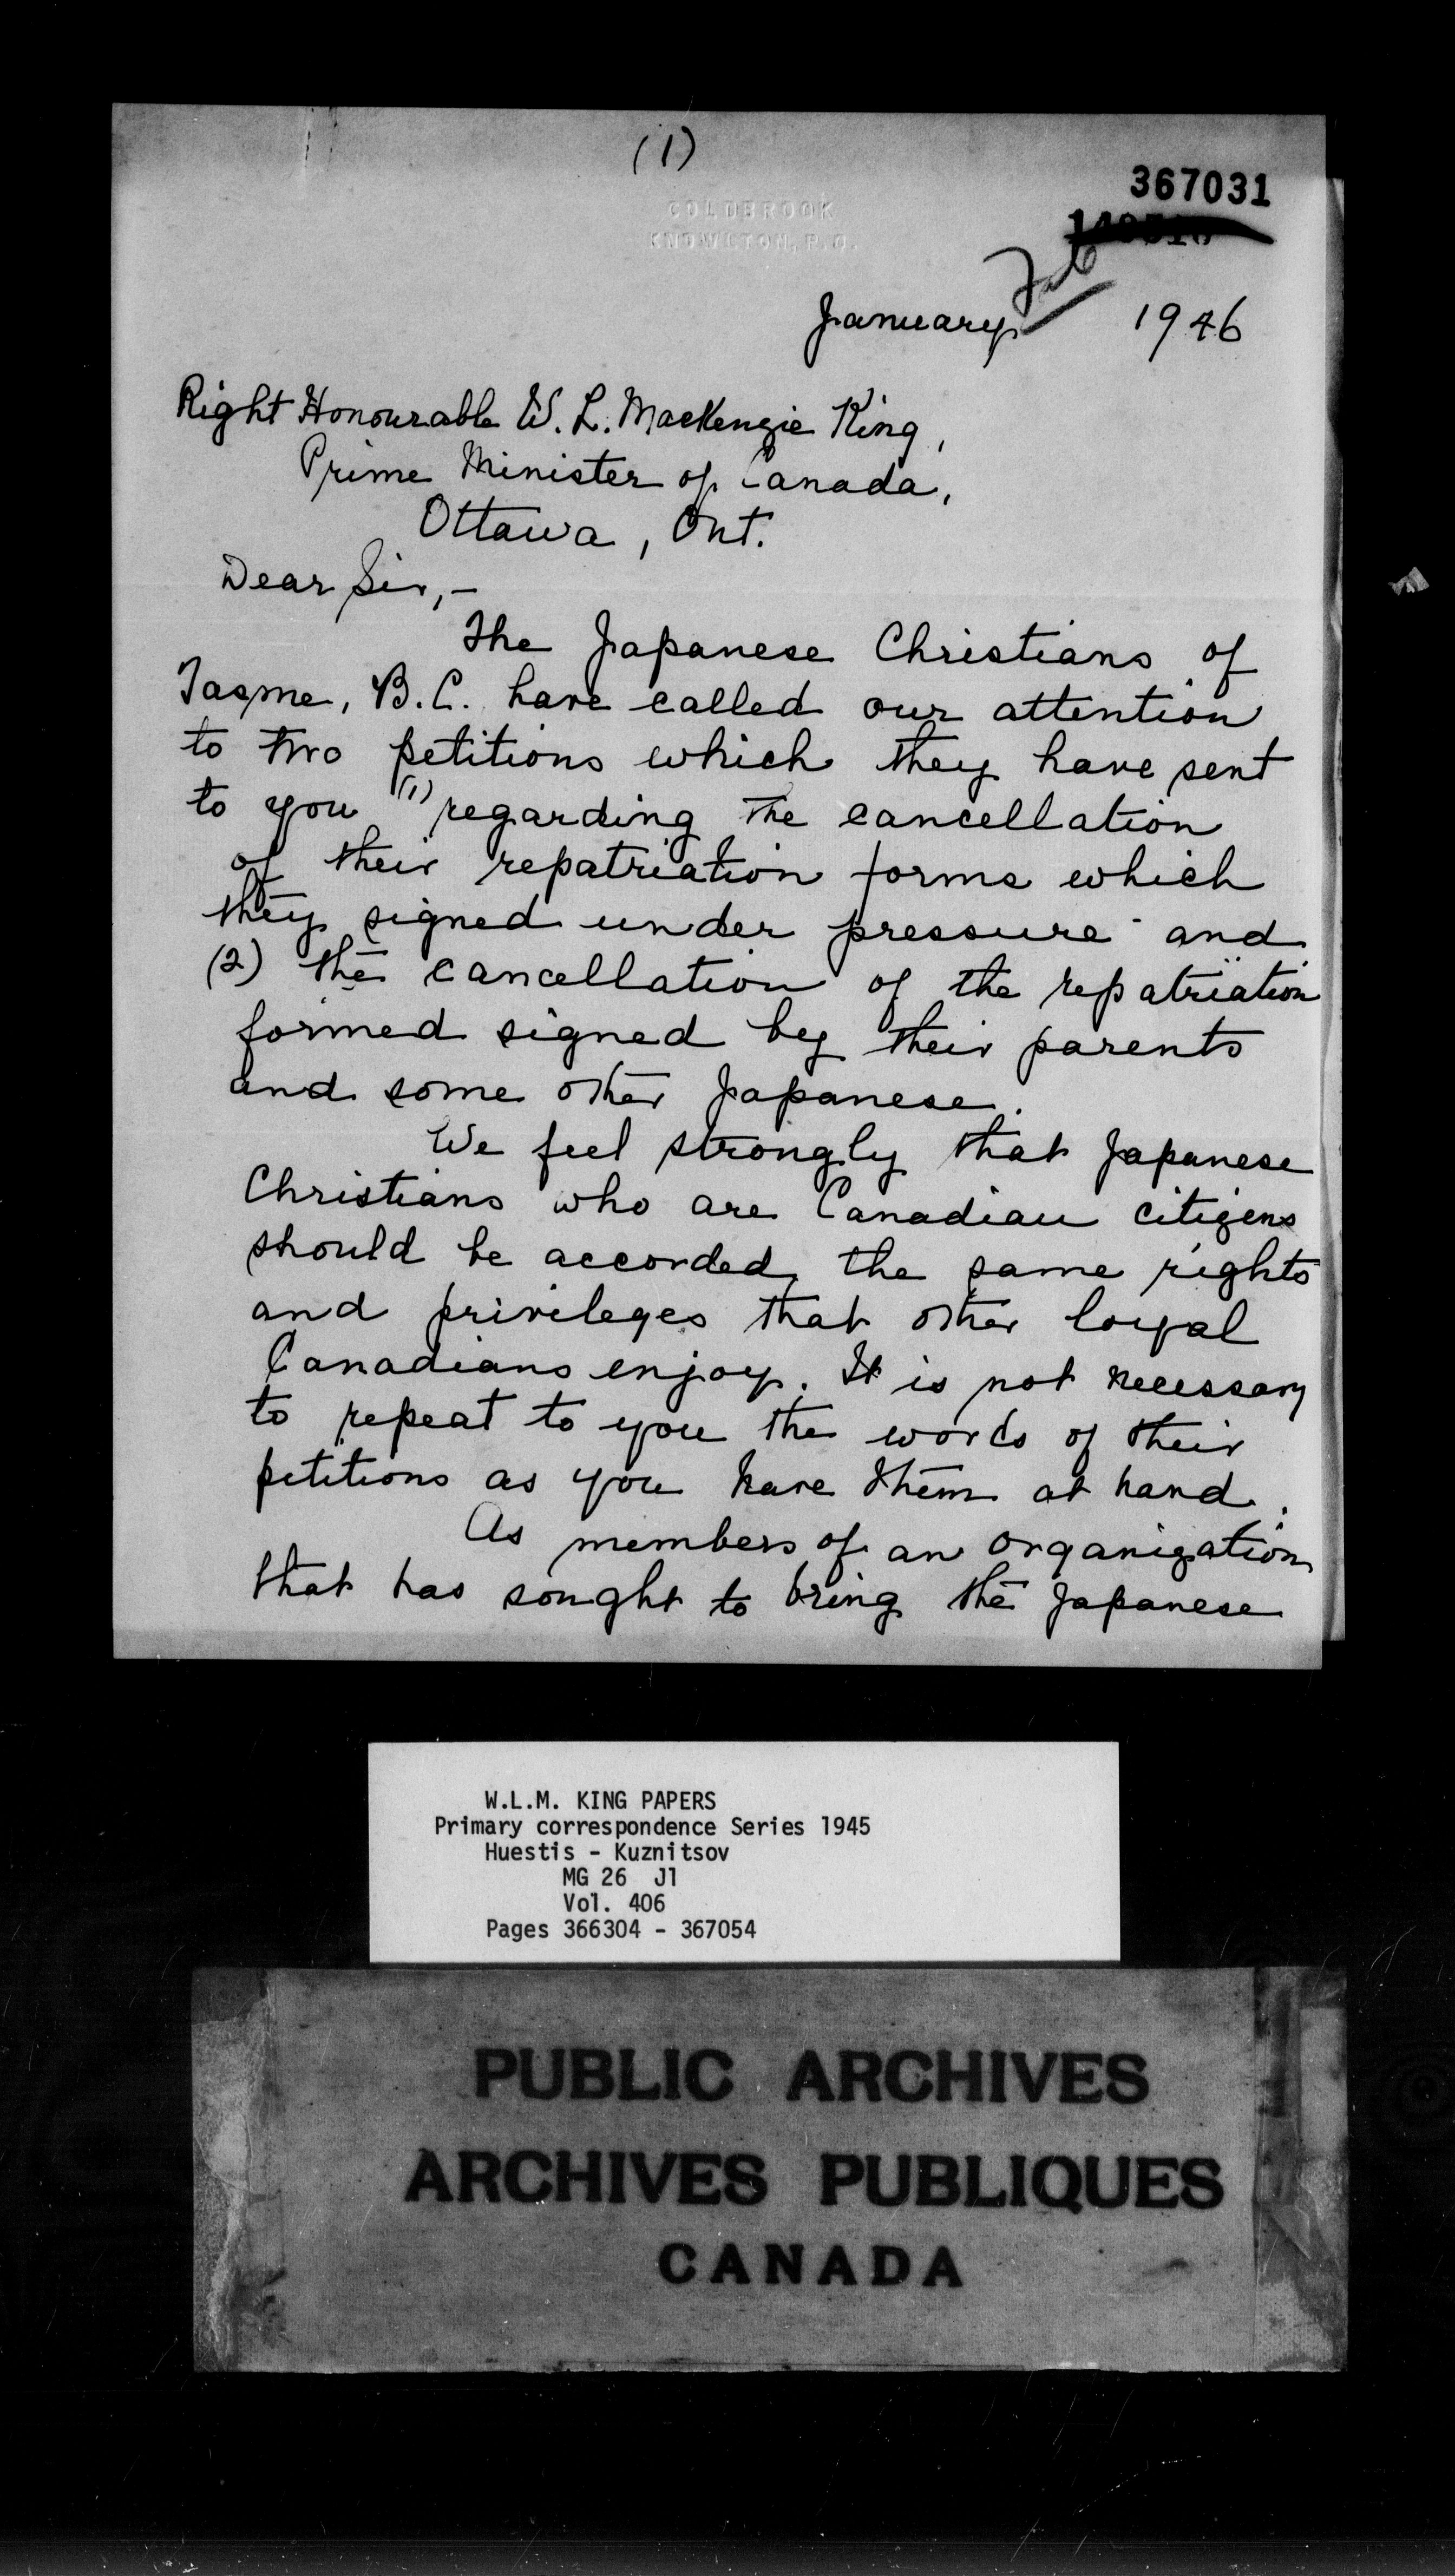 (1)
367031
COLDBROOK
KNOWLTON, P.Q.
Feb
January 1946
Right Honourable W. L. MacKenzie King,
Prime Minister of Canada,
Ottawa, Ont.
Dear Sir,-
The Japanese Christians of
Tasme, B.C. have called our attention
to two petitions which they have sent
to you (1) regarding the cancellation
of their repatriation forms which
they signed under pressure and
(2) the cancellation of the repatriation
formed signed by their parents
and some other Japanese.
We feel strongly that Japanese
Christians who are Canadian citizens
should be accorded the same rights
and privileges that other loyal
Canadians enjoy. It is not necessary
to repeat to you the words of their
petitions as you have them at hand.
As members of an organization
that has sought to bring the Japanese
W.L.M. KING PAPERS
Primary correspondence Series 1945
Huestis - Kuznitsov
MG 26 J1
Vol. 406
Pages 366304 - 367054
PUBLIC ARCHIVES
ARCHIVES PUBLIQUES
CANADA